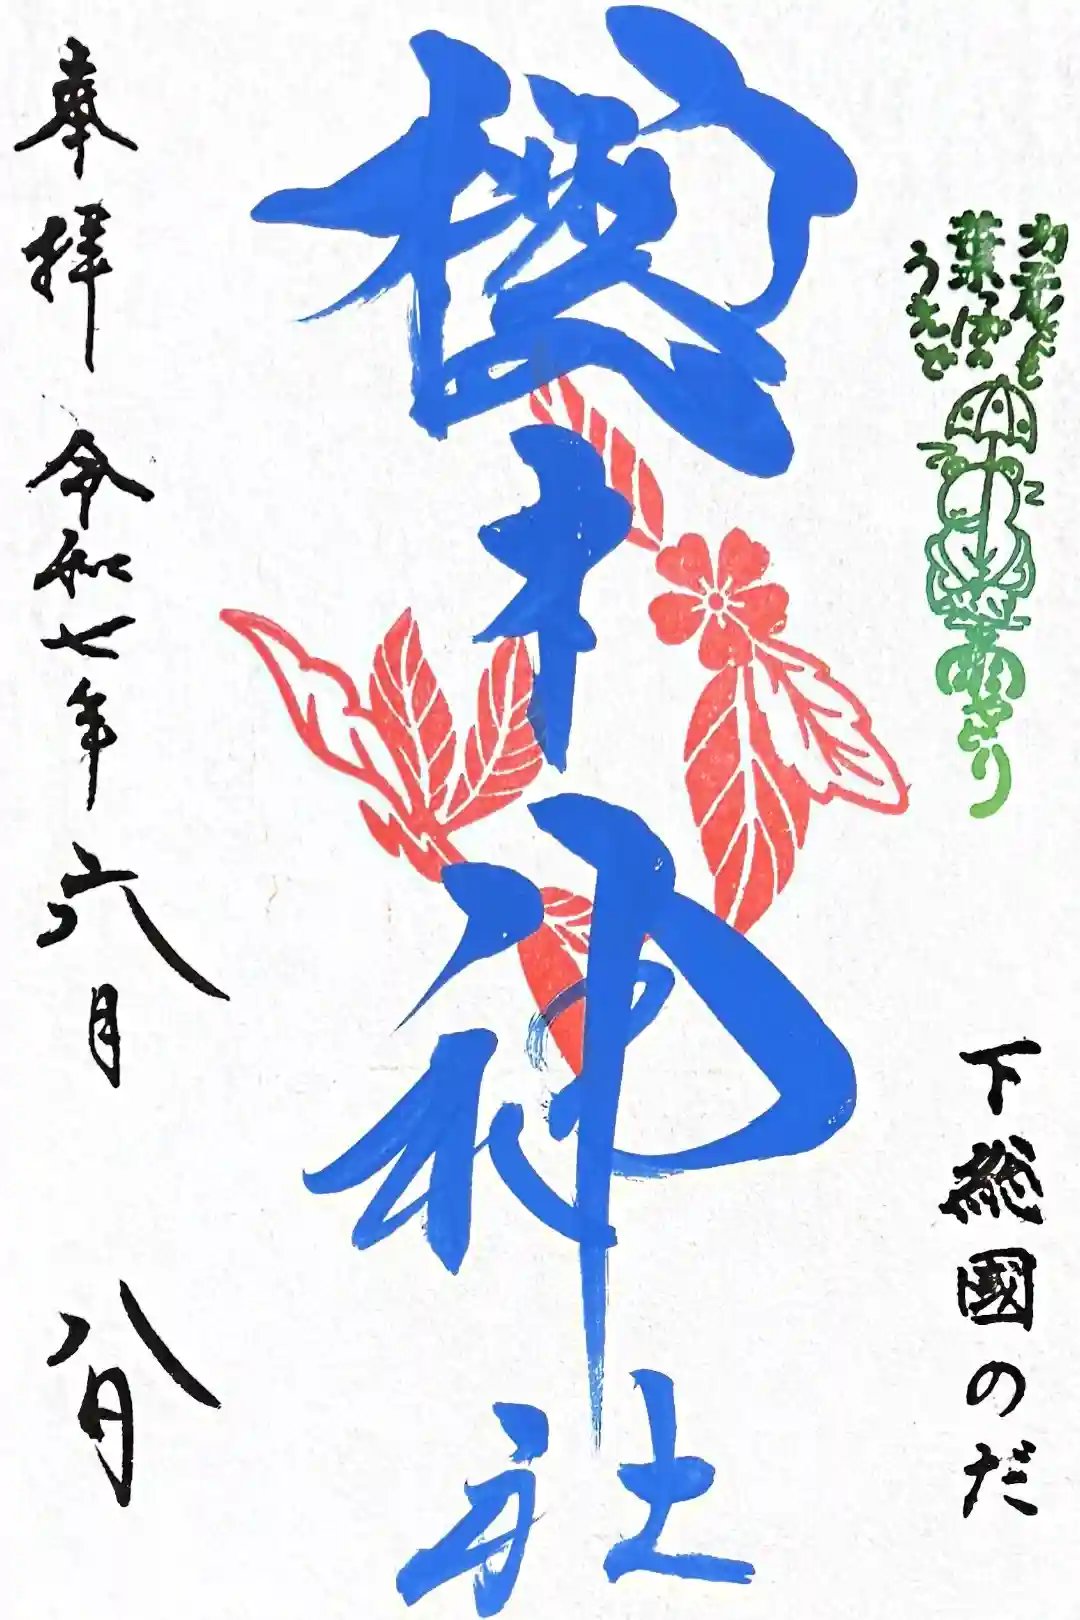 かえるさん
葉っぱの
うえで
雨やどり
下総國のだ
櫻木神社
奉拝 令和七年六月 八日